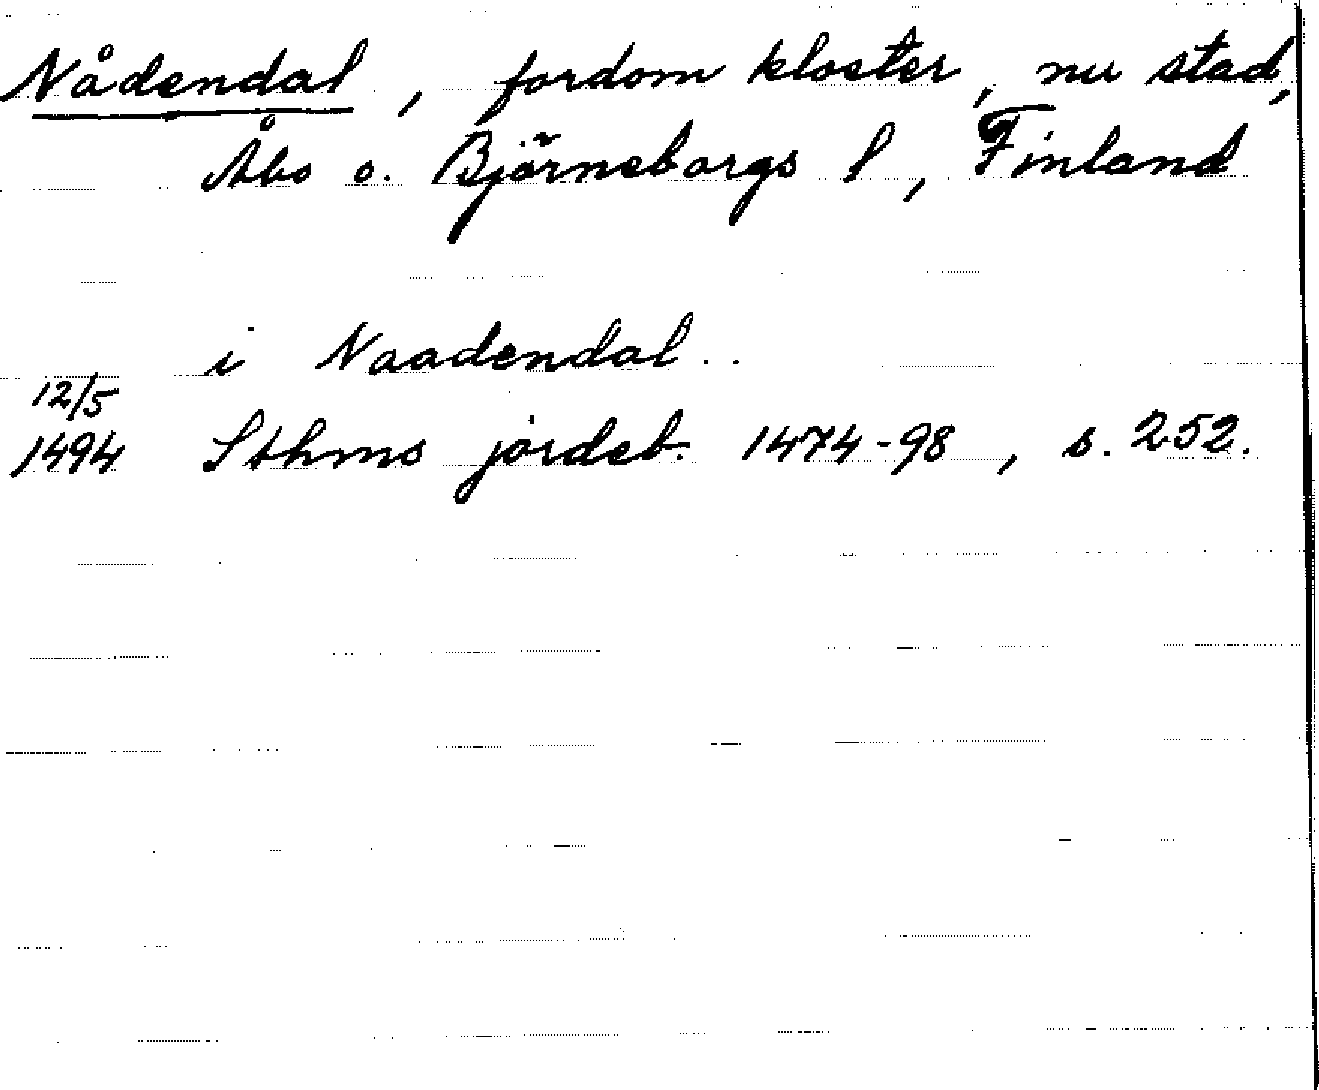 Nådendal, fordom kloster, nu stad,
Åbo o. Björneborgs l, Finland
i Naadendal..
12/5
1494 Sthms jordeb. 1474-98, s. 252.